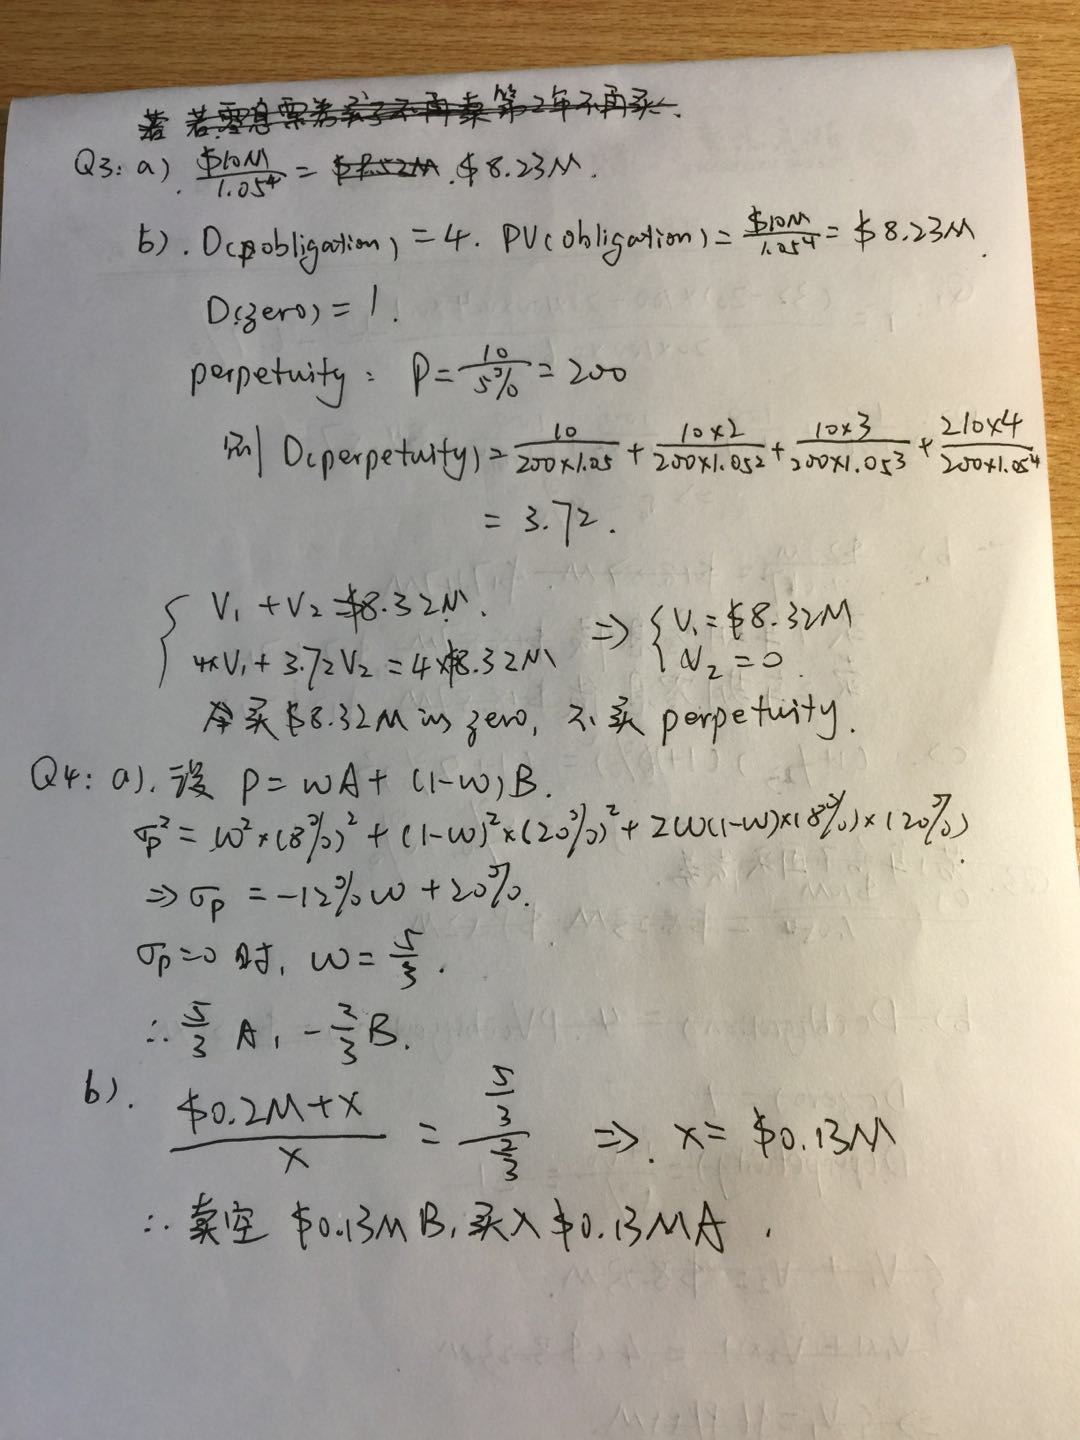 若 若零息票券卖了不再卖 第2年不再买.
Q3: a). $10M/1.05⁴ = $7.52M. $8.23M.
b). D(pobligation) = 4. PV(obligation) = $10M/1.05⁴ = $8.23M.
D(zero) = 1.
perpetuity: P = 10/5% = 200
则 D(perpetuity) = 10/200×1.05 + 10×2/200×1.05² + 10×3/200×1.05³ + 210×4/200×1.05⁴
= 3.72.
{ V₁ + V₂ = $8.32M. ⇒ { V₁ = $8.32M
4×V₁ + 3.72V₂ = 4×$8.32M V₂ = 0.
买 $8.32M in zero, 不买 perpetuity.
Q4: a). 设 P = wA + (1-w)B.
σp² = w²×(8%)² + (1-w)²×(20%)² + 2w(1-w)×(8%)×(20%)
⇒ σp = -12%w + 20%.
σp=0 时, w = 5/3.
∴ 5/3 A, -2/3 B.
b). $0.2M+x / x = 5/3 / 2/3 ⇒. x = $0.13M
∴ 卖空 $0.13M B, 买入 $0.13M A.